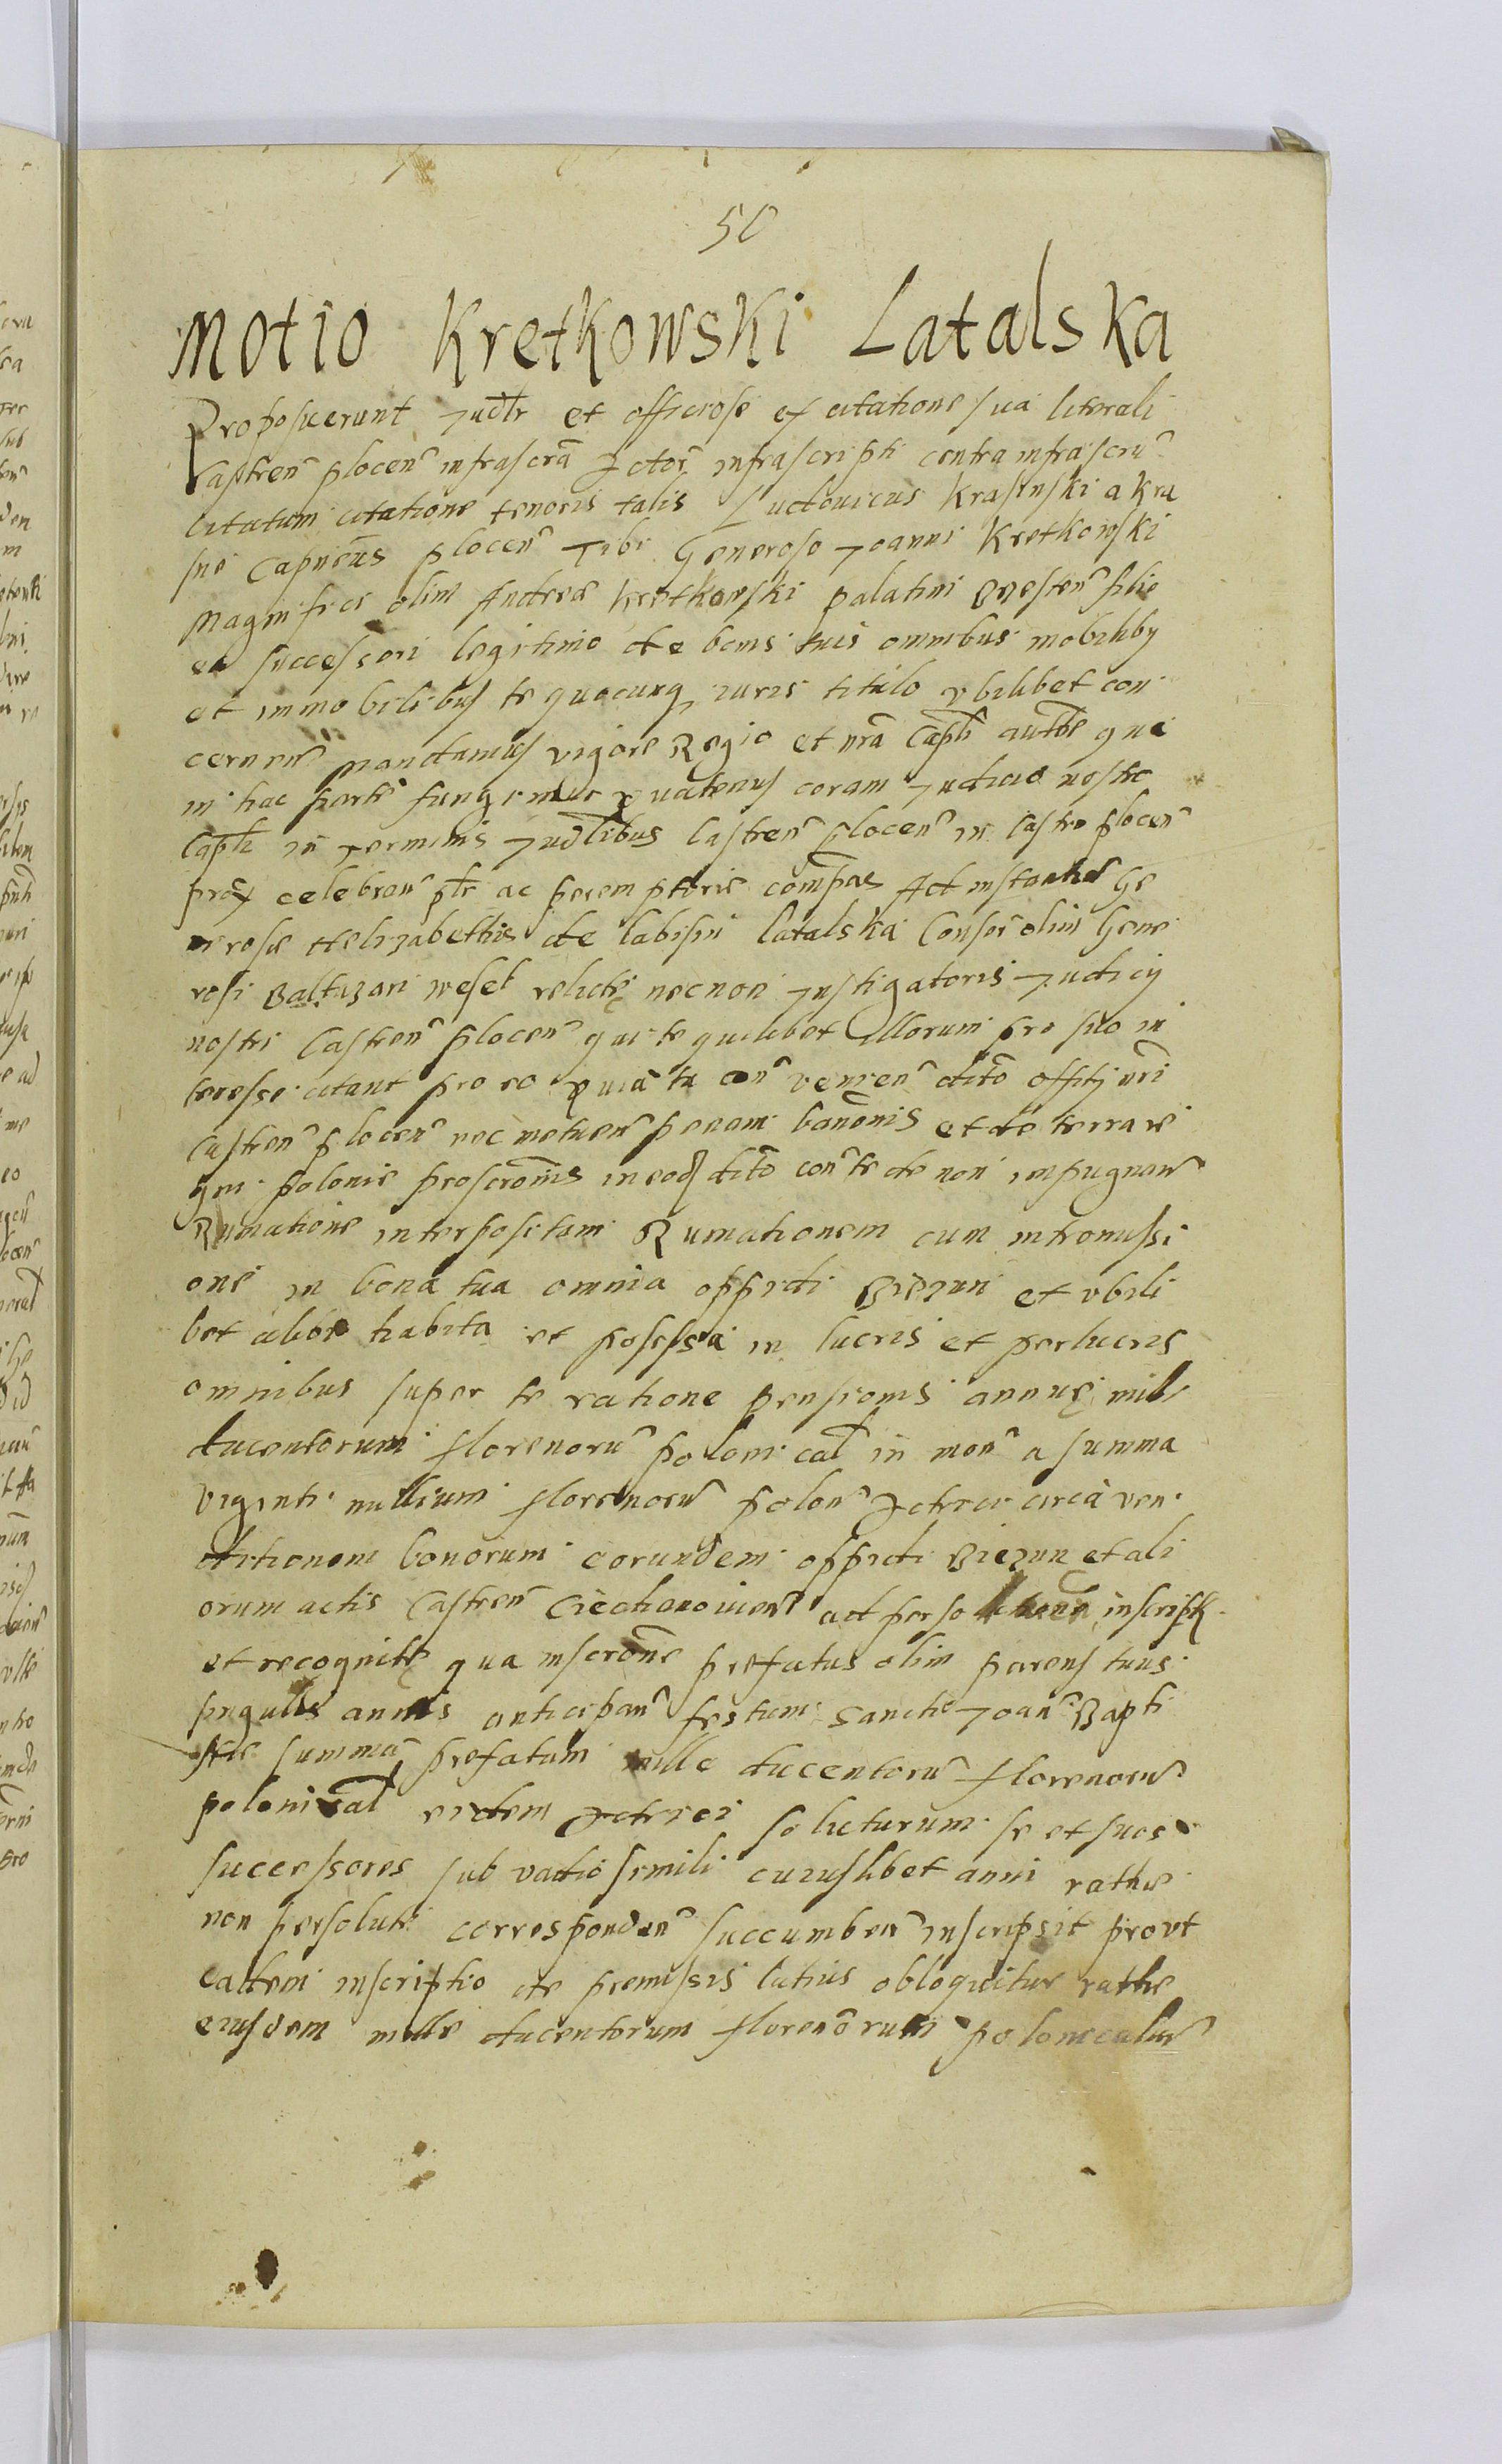 50
Motio Kretkowski Latalska
Proposuerunt Judlr et officiose ex citatione sua literali
Castren plocen infrascra Actor infrascripti contra infrascru
citatum citatione tenoris talis Ludovicus Krasinski a Kra
sne Capneus plocen Tibi Generoso Joanni Kretkowski
Magnifici olim Andreæ Kretkowski palatini Bresten filio
et successori legitimo de bonis tuis omnibus mobilibus
et immobilibus te quocunq iuris titulo ubilibet con
cernen Mandamus vigore Regio et nra Capli autte qua
in hac parte fungimur Quatenus coram Judicio nostro
Capli in Terminis Judlibus Castren plocen in Castro plocen
prox celebran ptr ac peremptorie compas Ad instantia Ge
nerosæ Helizabethis de labisin latalska Consor olim Gene
rosi Baltazari wesel relicte necnon Instigatoris Judicij
nostri Castren plocen qui te quilibet Illorum pro suo in
teresse citant pro eo Quia tu con venien dito offitij nri
Castren plocen nec metuen penam bannonis et de terra re
gni polonie proscronis in eod dito con te de non impugnan
Rumatione interpositam Rumationem cum intromissi
one in bona tua omnia oppidi Biezun et ubili
bet alibi habita et possessa in lucris et perlucris
omnibus super te ratione pensionis annuę mile
ducentorum florenoru polonical in mon a summa
viginti millium florenoru polon Actrici circa ven
ditionem bonorum eorundem oppidi Biezun et ali
orum actis Castren Ciechanovien ad persolvend inscripte
et recognite qua inscrone prefatus olim parens tuus
singulis annis anticipan festum Sancti Joan Bapti
stæ summa prefatam mille ducentoru florenoru
polonical eidem Actrici soluturum se et suos
successores sub vadio simili cuiuslibet anni rathæ
non persolute corresponden succumben inscripsit prout
eadem inscriptio de premissis latius obloquitur rathe
eiusdem mille ducentorum florenorum polonicaliu